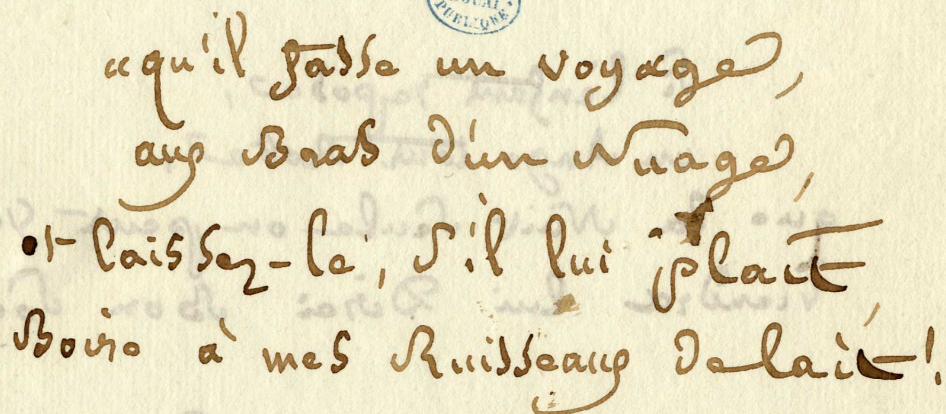 DOUAI
PUBLIQUE
"qu'il fasse un voyage,
aux Bras d'un Nuage,
et laissez-le, s'il lui plait
Boire à mes Ruisseaux de lait!